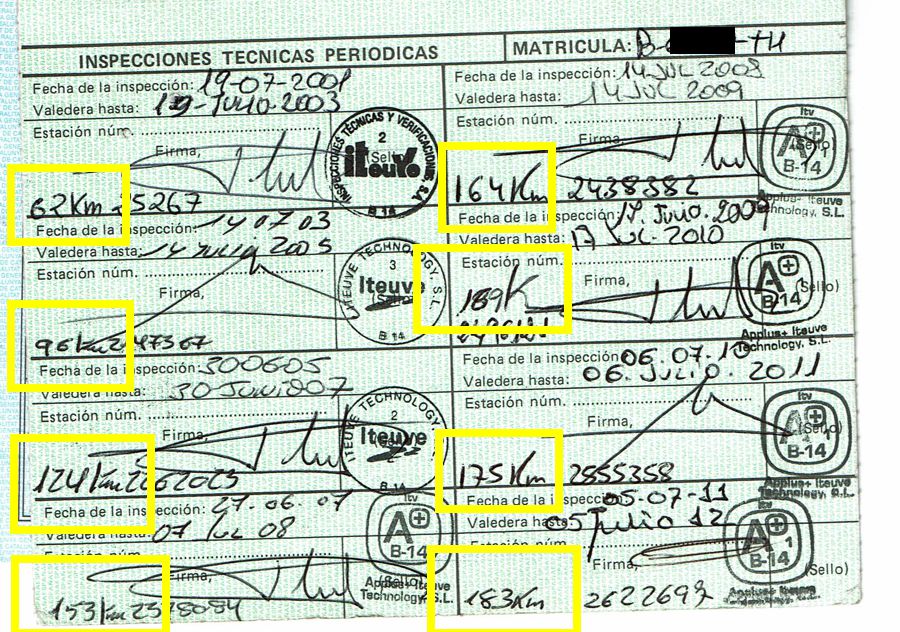 INSPECCIONES TECNICAS PERIODICAS
MATRICULA: B- -TH
Fecha de la inspección: 19-07-2001
Valedera hasta: 19-Julio-2003
Estación núm.
Firma,
(Sello)
INSPECCIONES TÉCNICAS Y VERIFICACIONES, S.A.
2
iteuve
B 14
62Km 25267
Fecha de la inspección: 14 07 03
Valedera hasta: 14 Julio 2005
Estación núm.
Firma,
(Sello)
ITEUVE TECHNOLOGY, S.L.
3
Iteuve
B 14
96Km 2147367
Fecha de la inspección: 300605
Valedera hasta: 30 Juni007
Estación núm.
Firma,
(Sello)
ITEUVE TECHNOLOGY
2
Iteuve
B 14
124Km 2262023
Fecha de la inspección: 27.06.07
Valedera hasta: 07 08
Estación núm.
Firma,
(Sello)
A+
B-14
Applus+ Iteuve
Technology, S.L.
153Km 2328084
Fecha de la inspección: 14 JUL 2008
Valedera hasta: 14 JUL 2009
Estación núm.
Firma,
(Sello)
Itv
A+
B-14
Applus+ Iteuve
Technology, S.L.
164Km 2438382
Fecha de la inspección: 17. Julio. 2009
Valedera hasta: 17 JUL. 2010
Estación núm.
Firma,
(Sello)
Itv
A+
B-14
Applus+ Iteuve
Technology, S.L.
169K
Fecha de la inspección: 06.07.10
Valedera hasta: 06. Julio. 2011
Estación núm.
Firma,
(Sello)
Itv
A+
B-14
Applus+ Iteuve
Technology, S.L.
175Km 2855358
Fecha de la inspección: 05-07-11
Valedera hasta: 05 Julio 12
Estación núm.
Firma,
(Sello)
Itv
A+
1
B-14
Applus+ Iteuve
Technology, S.L.
183Km 2622697